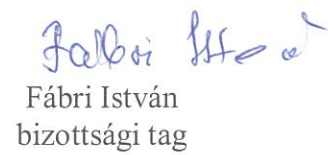 Fábri István
Fábri István
bizottsági tag